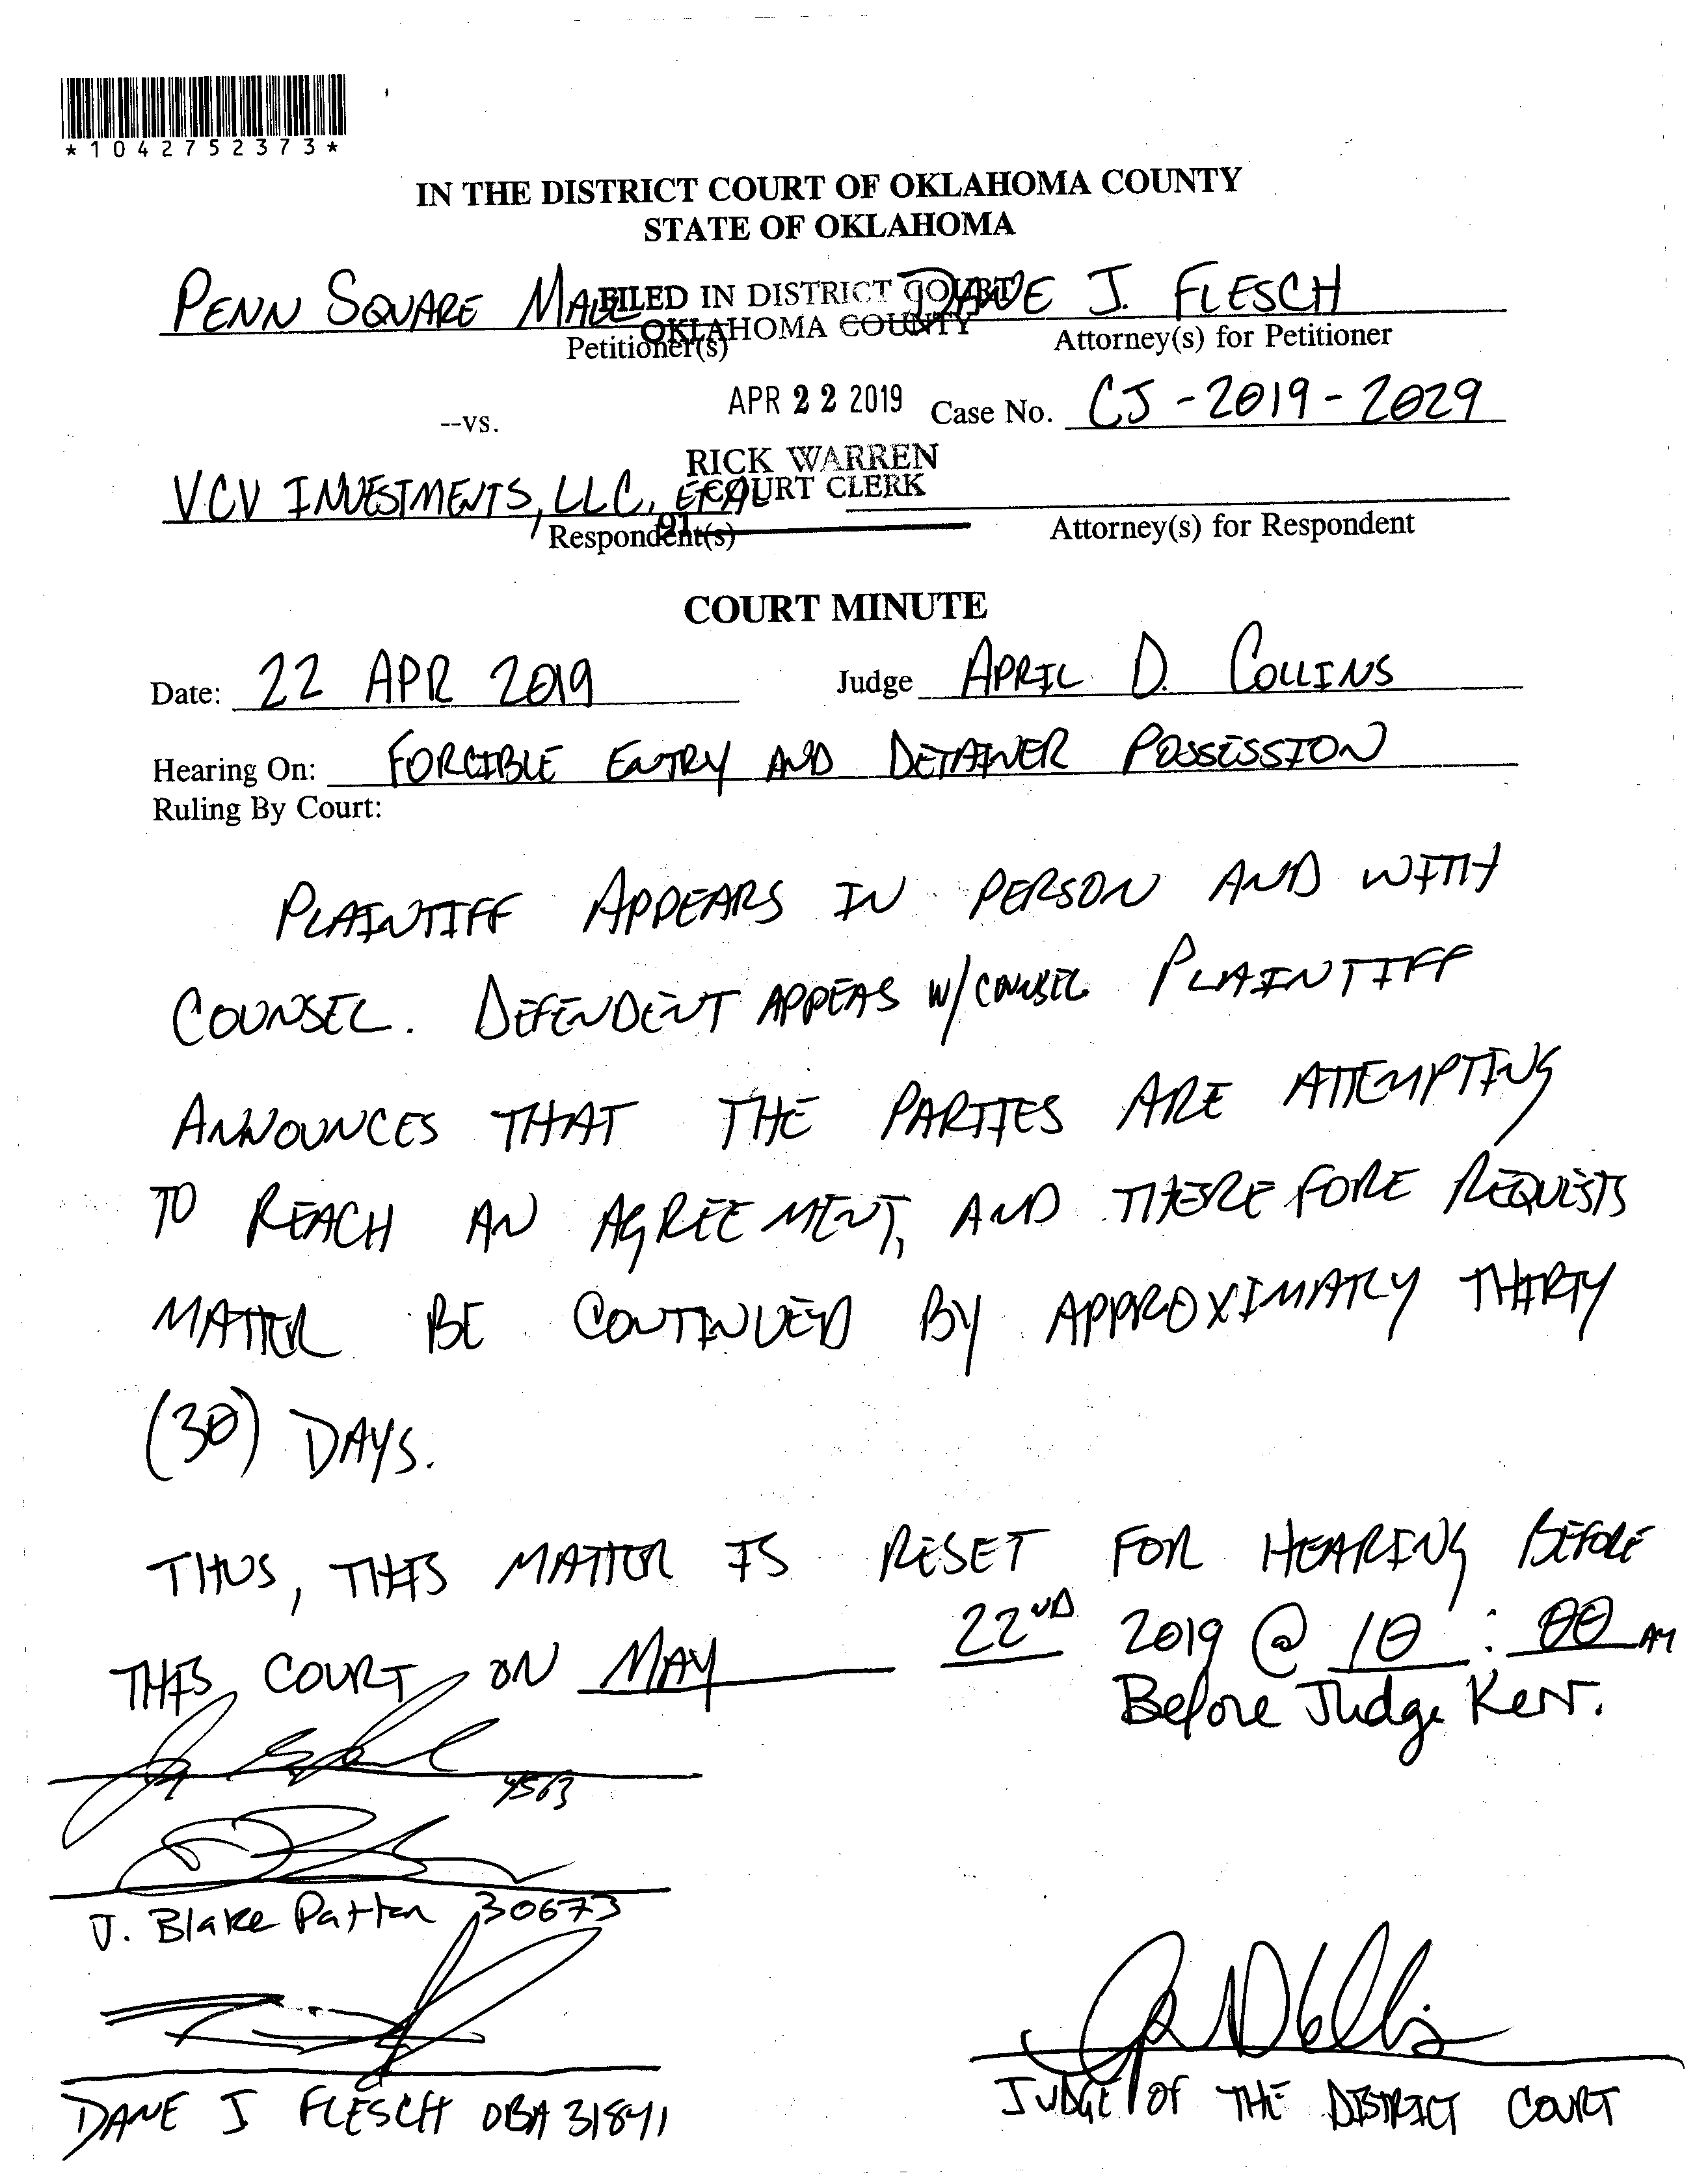 *1042752373*
IN THE DISTRICT COURT OF OKLAHOMA COUNTY
STATE OF OKLAHOMA
PENN SQUARE MALL DANE J. FLESCH
FILED IN DISTRICT COURT
OKLAHOMA COUNTY
Petitioner(s) Attorney(s) for Petitioner
APR 22 2019 Case No. CJ-2019-2029
--vs.
RICK WARREN
COURT CLERK
VCV INVESTMENTS, LLC, ET AL
Respondent(s) Attorney(s) for Respondent
COURT MINUTE
Date: 22 APR 2019 Judge APRIL D. COLLINS
Hearing On: FORCIBLE ENTRY AND DETAINER POSSESSION
Ruling By Court:
PLAINTIFF APPEARS IN PERSON AND WITH
COUNSEL. DEFENDENT APPEAS W/COUNSEL PLAINTIFF
ANNOUNCES THAT THE PARTIES ARE ATTEMPTING
TO REACH AN AGREEMENT, AND THEREFORE REQUESTS
MATTER BE CONTINUED BY APPROXIMATLY THIRTY
(30) DAYS.
THUS, THIS MATTER IS RESET FOR HEARING BEFORE
THIS COURT ON MAY 22ND 2019 @ 10:00 AM
Before Judge Kerr.
4563
J. Blake Patton 30673
DANE J FLESCH OBA 31841
JUDGE OF THE DISTRICT COURT